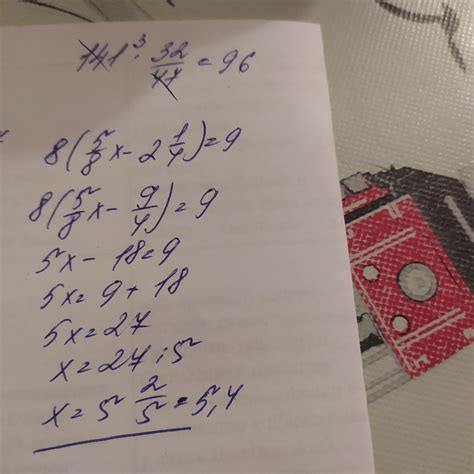 141³ · 32/47 = 96
8(5/8x - 2 1/4) = 9
8(5/8x - 9/4) = 9
5x - 18 = 9
5x = 9 + 18
5x = 27
x = 27 : 5
x = 5 2/5 = 5,4